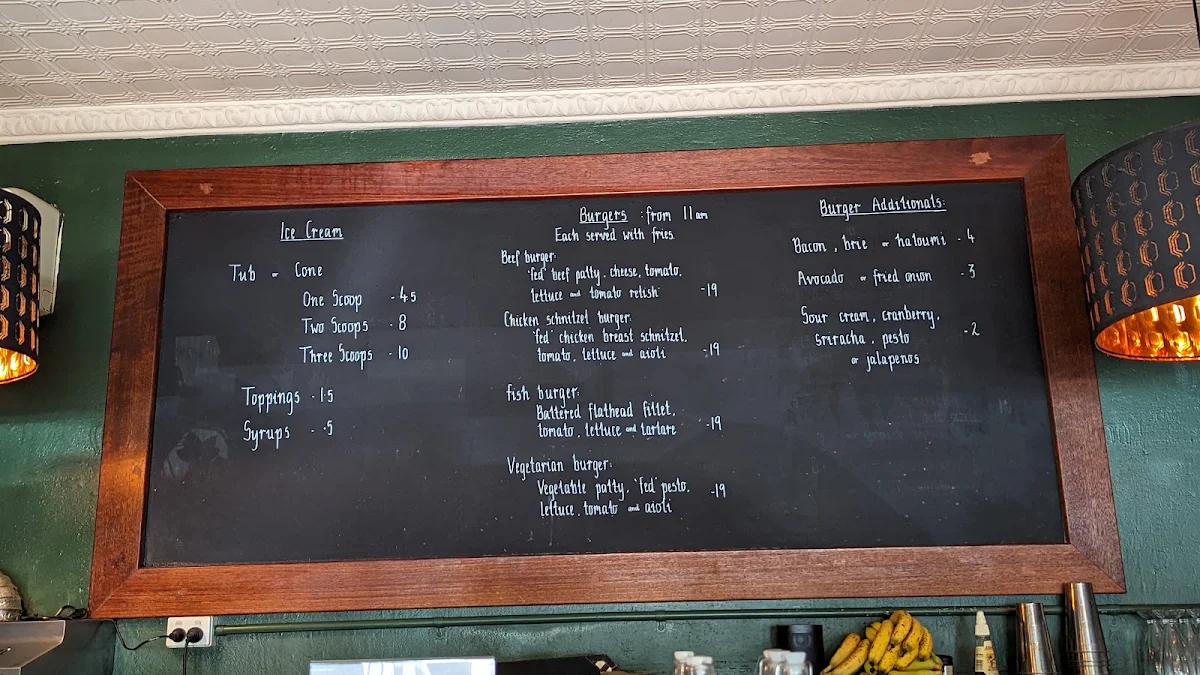 Ice Cream
Tub or Cone
One Scoop - 4.5
Two Scoops - 8
Three Scoops - 10
Toppings - 1.5
Syrups - .5
Burgers : from 11am
Each served with fries.
Beef burger:
'fed' beef patty, cheese, tomato,
lettuce and tomato relish -19
Chicken schnitzel burger:
'fed' chicken breast schnitzel,
tomato, lettuce and aioli -19
fish burger:
Battered flathead fillet,
tomato, lettuce and tartare -19
Vegetarian burger:
Vegetable patty, 'fed' pesto, -19
lettuce, tomato and aioli
Burger Additionals:
Bacon, brie or haloumi - 4
Avocado or fried onion - 3
Sour cream, cranberry,
Sriracha, pesto - 2
or jalapenos